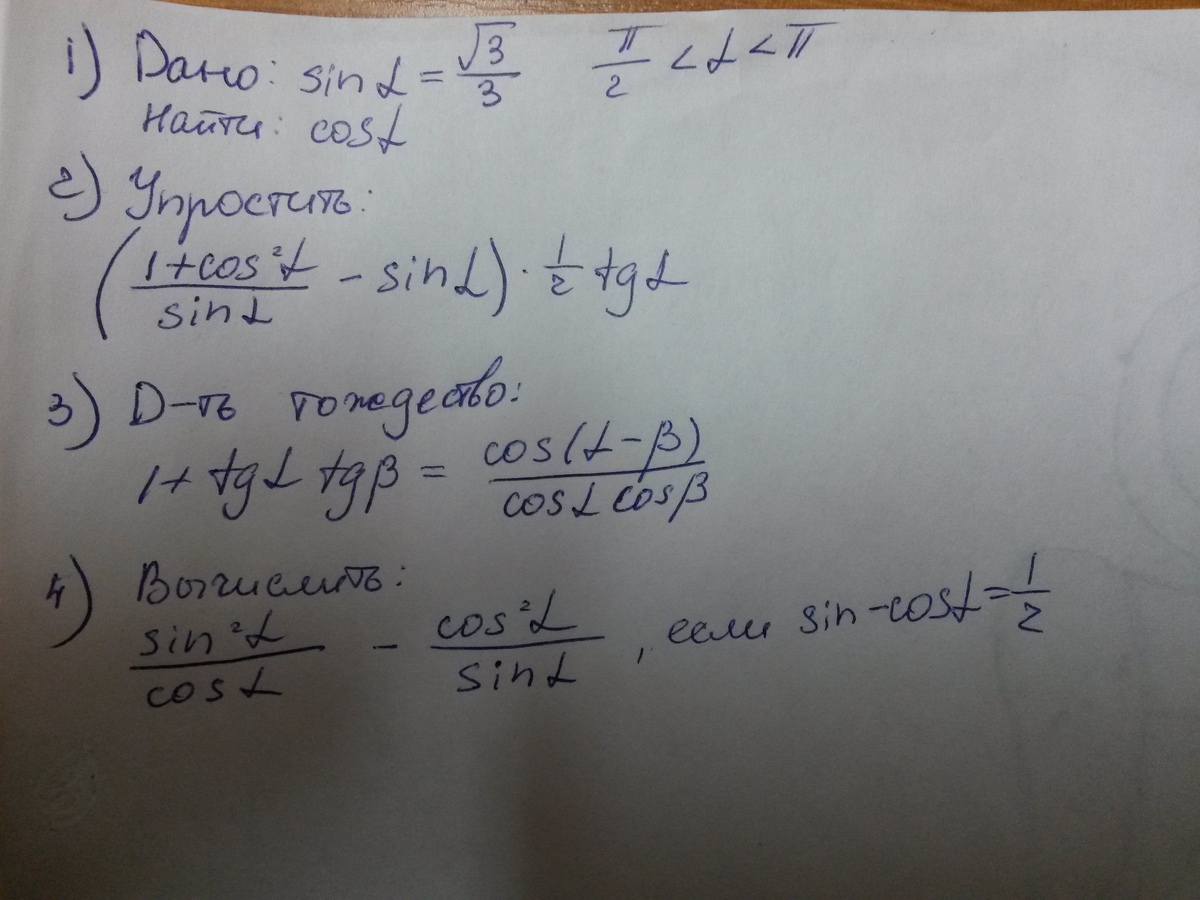 1) Дано: sin α = √3/3 π/2 < α < π
Найти: cos α
2) Упростить:
((1+cos²α)/sin α − sin α) · 1/2 tg α
3) D-ть тождество:
1 + tg α tg β = cos(α−β)/(cos α cos β)
4) Вычислить:
sin²α/cos α − cos²α/sin α, если sin − cos α = 1/2